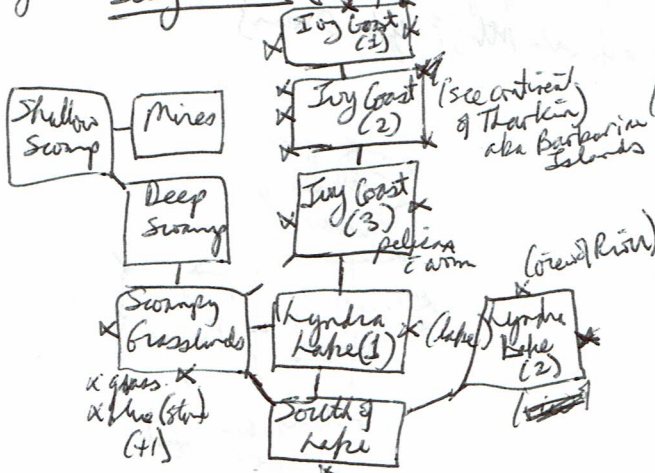 Ivy Coast
(1)
Ivy Coast
(2)
(see continent
of Tharkin)
aka Barbarian
Islands
Shallow
Swamp
Mines
Deep
Swamp
Ivy Coast
(3)
pelican
Swampy
Grasslands
Lyndra
Lake (1)
(lake)
Lyndra
Lake
(2)
x grass
(+1)
South of
Lake